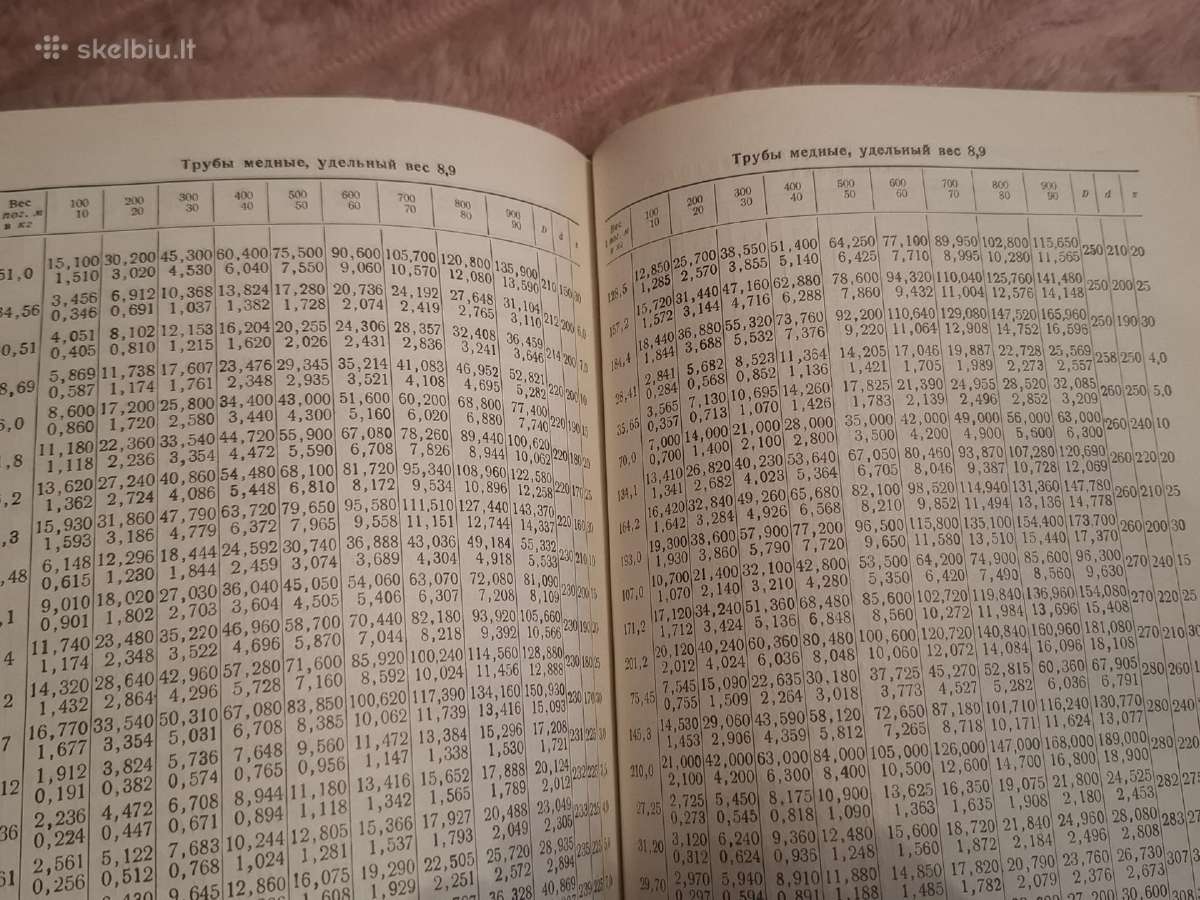 skelbiu.lt
Трубы медные, удельный вес 8,9
Вес пог. м в кг 100 200 300 400 500 600 700 800 900 D d s
10 20 30 40 50 60 70 80 90
51,0 15,100 30,200 45,300 60,400 75,500 90,600 105,700 120,800 135,900 210 150 30
1,510 3,020 4,530 6,040 7,550 9,060 10,570 12,080 13,590
34,56 3,456 6,912 10,368 13,824 17,280 20,736 24,192 27,648 31,104 212 200 6,0
0,346 0,691 1,037 1,382 1,728 2,074 2,419 2,765 3,110
0,51 4,051 8,102 12,153 16,204 20,255 24,306 28,357 32,408 36,459 214 200 7,0
0,405 0,810 1,215 1,620 2,026 2,431 2,836 3,241 3,646
8,69 5,869 11,738 17,607 23,476 29,345 35,214 41,083 46,952 52,821 220 200 10
0,587 1,174 1,761 2,348 2,935 3,521 4,108 4,695 5,282
6,0 8,600 17,200 25,800 34,400 43,000 51,600 60,200 68,800 77,400 220 190 15
0,860 1,720 2,580 3,440 4,300 5,160 6,020 6,880 7,740
1,8 11,180 22,360 33,540 44,720 55,900 67,080 78,260 89,440 100,620 220 180 20
1,118 2,236 3,354 4,472 5,590 6,708 7,826 8,944 10,062
,2 13,620 27,240 40,860 54,480 68,100 81,720 95,340 108,960 122,580 220 170 25
1,362 2,724 4,086 5,448 6,810 8,172 9,534 10,896 12,258
,3 15,930 31,860 47,790 63,720 79,650 95,580 111,510 127,440 143,370 220 160 30
1,593 3,186 4,779 6,372 7,965 9,558 11,151 12,744 14,337
,48 6,148 12,296 18,444 24,592 30,740 36,888 43,036 49,184 55,332 230 210 10
0,615 1,230 1,844 2,459 3,074 3,689 4,304 4,918 5,533
,1 9,010 18,020 27,030 36,040 45,050 54,060 63,070 72,080 81,090 230 200 15
0,901 1,802 2,703 3,604 4,505 5,406 6,307 7,208 8,109
4 11,740 23,480 35,220 46,960 58,700 70,440 82,180 93,920 105,660 230 190 20
1,174 2,348 3,522 4,696 5,870 7,044 8,218 9,392 10,566
2 14,320 28,640 42,960 57,280 71,600 85,920 100,240 114,560 128,880 230 180 25
1,432 2,864 4,296 5,728 7,160 8,592 10,024 11,456 12,888
7 16,770 33,540 50,310 67,080 83,850 100,620 117,390 134,160 150,930 230 170 30
1,677 3,354 5,031 6,708 8,385 10,062 11,739 13,416 15,093
12 1,912 3,824 5,736 7,648 9,560 11,472 13,384 15,296 17,208 231 225 3,0
0,191 0,382 0,574 0,765 0,956 1,147 1,338 1,530 1,721
36 2,236 4,472 6,708 8,944 11,180 13,416 15,652 17,888 20,124 232 225 3,5
0,224 0,447 0,671 0,894 1,118 1,342 1,565 1,789 2,012
61 2,561 5,122 7,683 10,244 12,805 15,366 17,927 20,488 23,049 233 225 4,0
0,256 0,512 0,768 1,024 1,281 1,537 1,793 2,049 2,305
9,645 12,860 16,075 19,290 22,505 25,720 28,935 235 225 5,0
1,608 1,929 2,251 2,572 2,894
36,328 40,869 239 225 7,0
Трубы медные, удельный вес 8,9
Вес 1 пог. м в кг 100 200 300 400 500 600 700 800 900 D d s
10 20 30 40 50 60 70 80 90
128,5 12,850 25,700 38,550 51,400 64,250 77,100 89,950 102,800 115,650 250 210 20
1,285 2,570 3,855 5,140 6,425 7,710 8,995 10,280 11,565
157,2 15,720 31,440 47,160 62,880 78,600 94,320 110,040 125,760 141,480 250 200 25
1,572 3,144 4,716 6,288 7,860 9,432 11,004 12,576 14,148
184,4 18,440 36,880 55,320 73,760 92,200 110,640 129,080 147,520 165,960 250 190 30
1,844 3,688 5,532 7,376 9,220 11,064 12,908 14,752 16,596
28,41 2,841 5,682 8,523 11,364 14,205 17,046 19,887 22,728 25,569 258 250 4,0
0,284 0,568 0,852 1,136 1,421 1,705 1,989 2,273 2,557
35,65 3,565 7,130 10,695 14,260 17,825 21,390 24,955 28,520 32,085 260 250 5,0
0,357 0,713 1,070 1,426 1,783 2,139 2,496 2,852 3,209
70,0 7,000 14,000 21,000 28,000 35,000 42,000 49,000 56,000 63,000 260 240 10
0,700 1,400 2,100 2,800 3,500 4,200 4,900 5,600 6,300
134,1 13,410 26,820 40,230 53,640 67,050 80,460 93,870 107,280 120,690 260 220 20
1,341 2,682 4,023 5,364 6,705 8,046 9,387 10,728 12,069
164,2 16,420 32,840 49,260 65,680 82,100 98,520 114,940 131,360 147,780 260 210 25
1,642 3,284 4,926 6,568 8,210 9,852 11,494 13,136 14,778
193,0 19,300 38,600 57,900 77,200 96,500 115,800 135,100 154,400 173,700 260 200 30
1,930 3,860 5,790 7,720 9,650 11,580 13,510 15,440 17,370
107,0 10,700 21,400 32,100 42,800 53,500 64,200 74,900 85,600 96,300 270 240 15
1,070 2,140 3,210 4,280 5,350 6,420 7,490 8,560 9,630
171,2 17,120 34,240 51,360 68,480 85,600 102,720 119,840 136,960 154,080 270 220 25
1,712 3,424 5,136 6,848 8,560 10,272 11,984 13,696 15,408
201,2 20,120 40,240 60,360 80,480 100,600 120,720 140,840 160,960 181,080 270 210 30
2,012 4,024 6,036 8,048 10,060 12,072 14,084 16,096 18,108
75,45 7,545 15,090 22,635 30,180 37,725 45,270 52,815 60,360 67,905 280 260 1
0,755 1,509 2,264 3,018 3,773 4,527 5,282 6,036 6,791
145,3 14,530 29,060 43,590 58,120 72,650 87,180 101,710 116,240 130,770 280 240
1,453 2,906 4,359 5,812 7,265 8,718 10,171 11,624 13,077
210,0 21,000 42,000 63,000 84,000 105,000 126,000 147,000 168,000 189,000 280 220
2,100 4,200 6,300 8,400 10,500 12,600 14,700 16,800 18,900
27,25 2,725 5,450 8,175 10,900 13,625 16,350 19,075 21,800 24,525 282 275
0,273 0,545 0,818 1,090 1,363 1,635 1,908 2,180 2,453
31,20 3,120 6,240 9,360 12,480 15,600 18,720 21,840 24,960 28,080 283 27
0,312 0,624 0,935 1,248 1,560 1,872 2,184 2,496 2,808
29,70 2,970 5,940 8,910 11,880 14,850 17,820 20,790 23,760 26,730 307 3
0,297 0,594 0,891 1,188 1,485 1,782 2,079 2,376 2,673